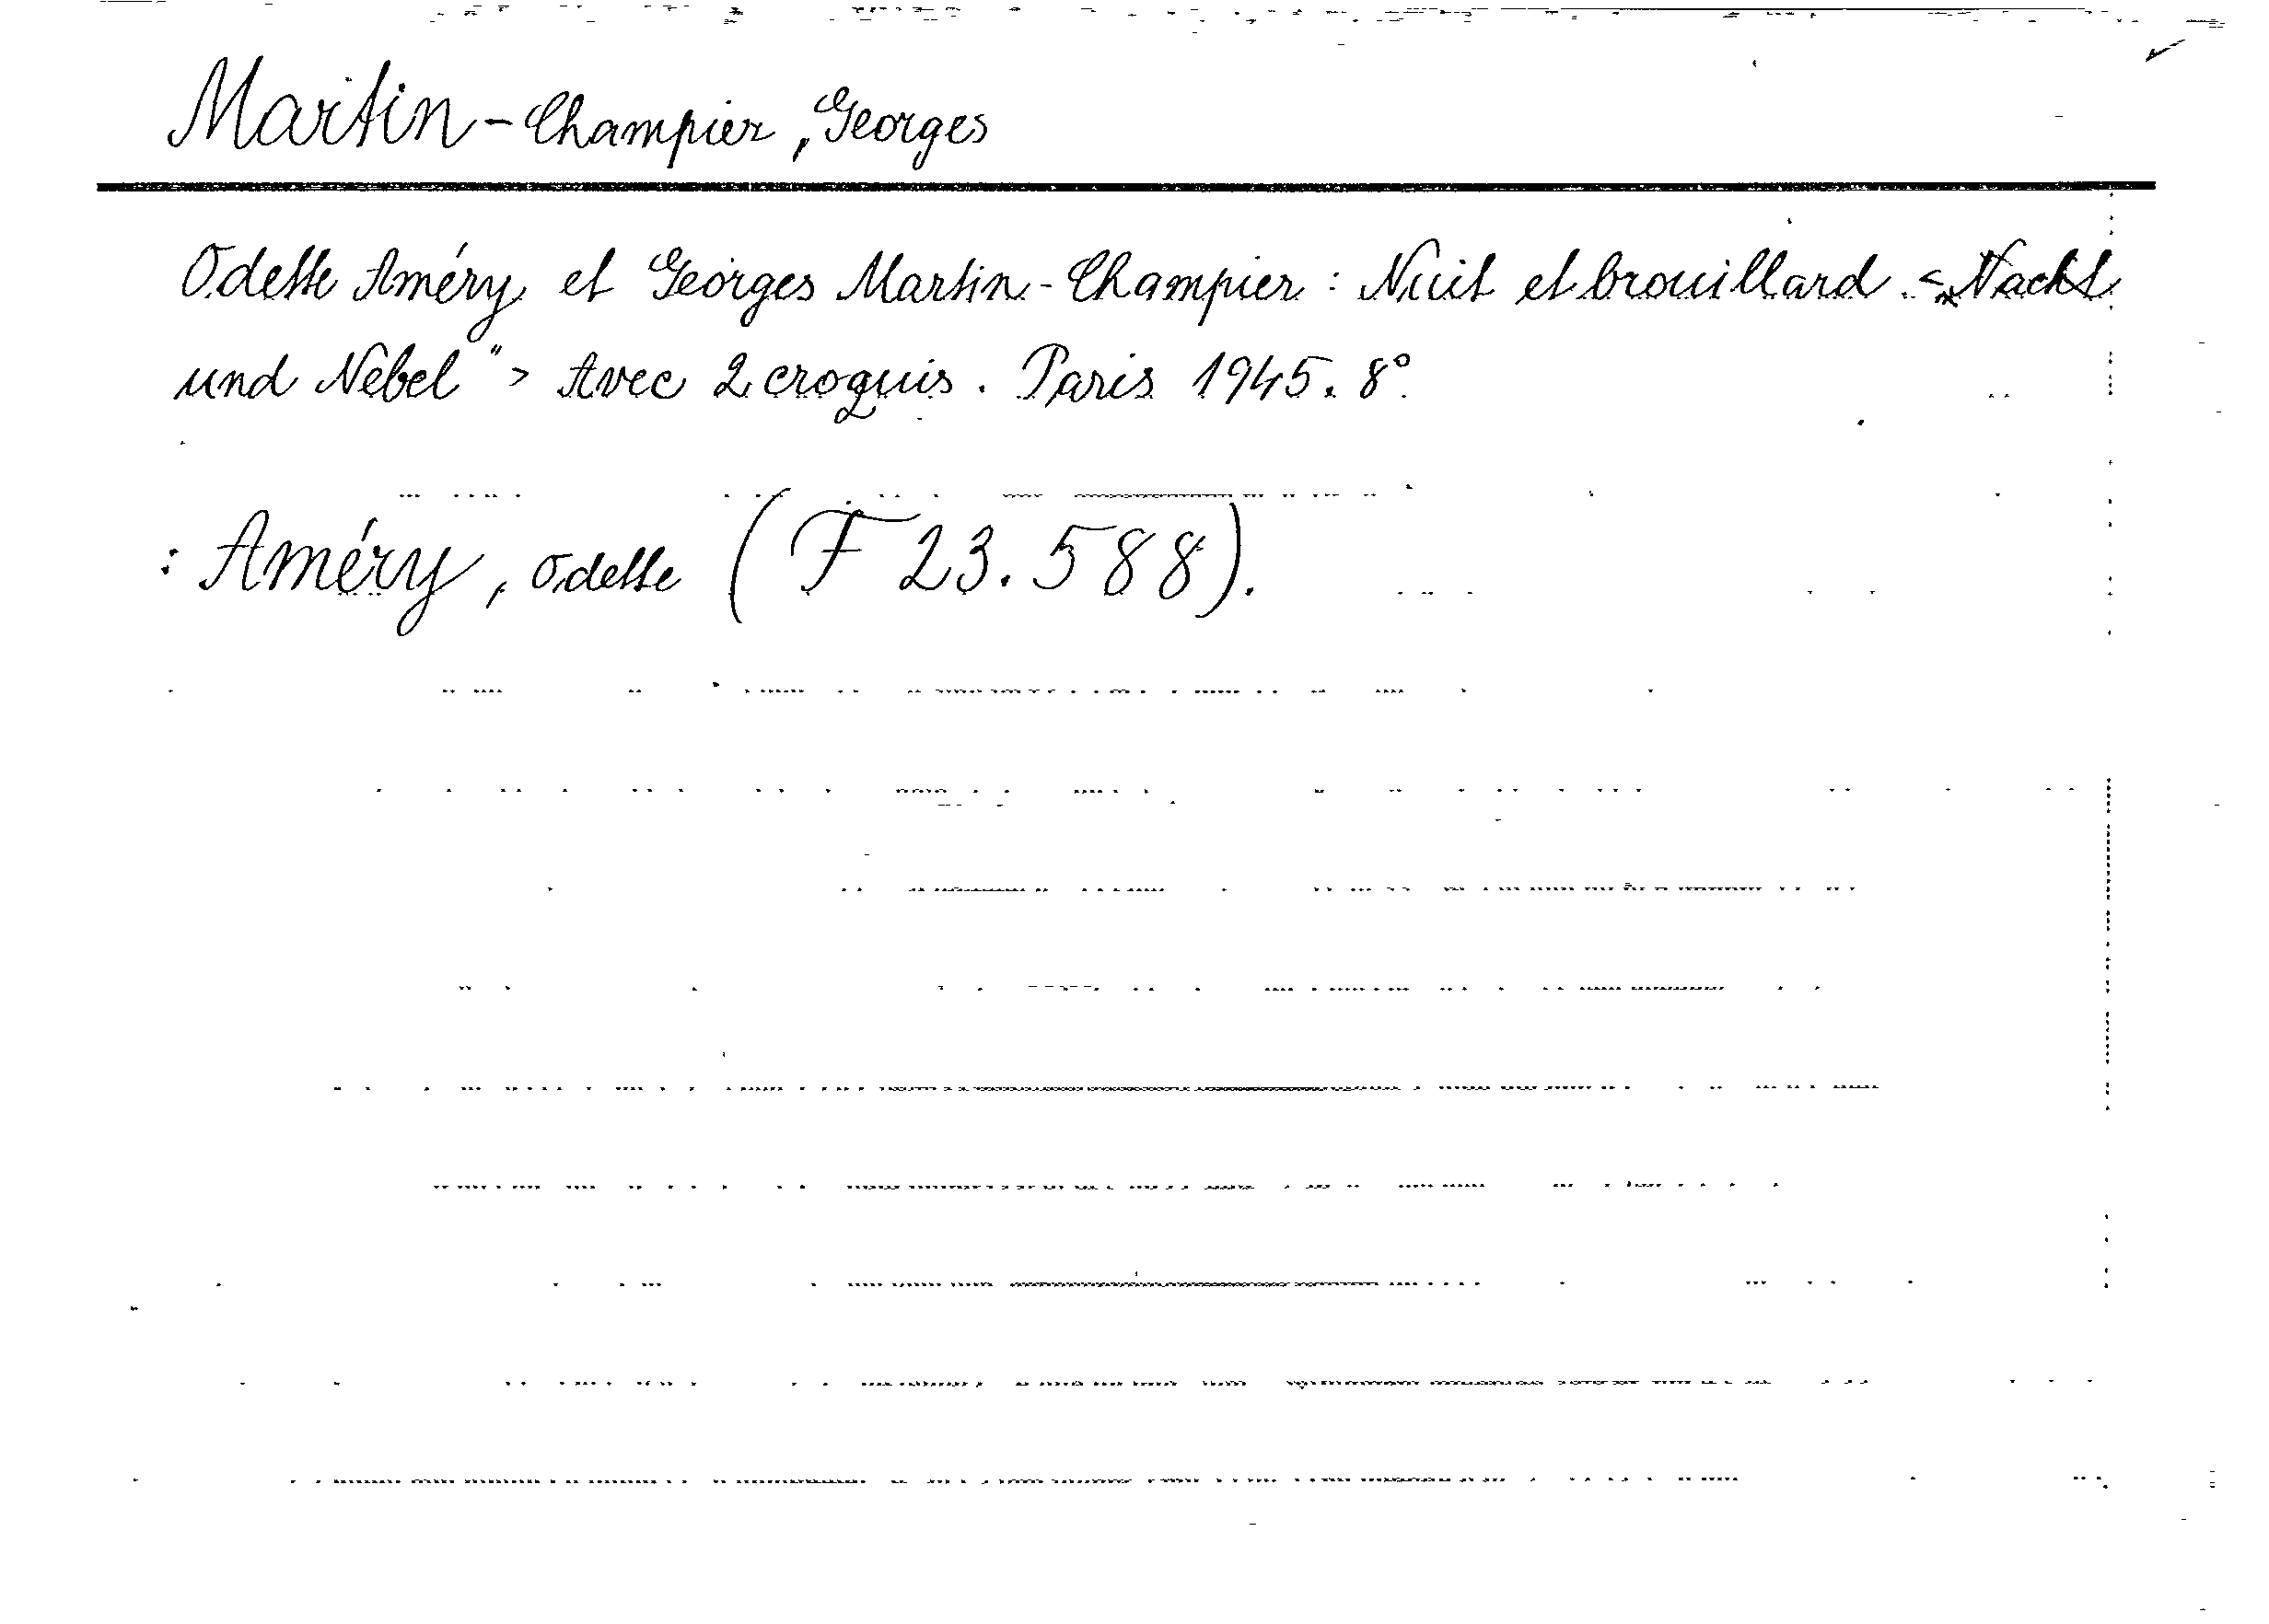 Martin-Champier, Georges
Odette Améry et Georges Martin-Champier : Nuit et brouillard. <„Nacht
und Nebel"> Avec 2 croquis. Paris 1945. 8°.
: Améry, Odette (F 23.588).